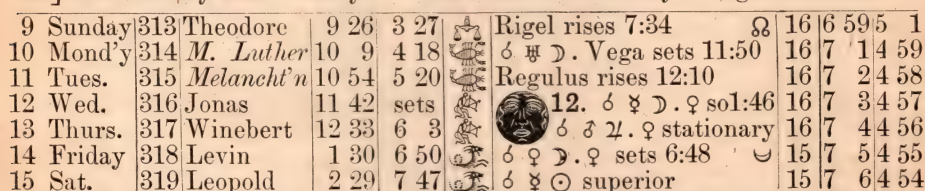 9 Sunday 313 Theodore 9 26 3 27 ♎ Rigel rises 7:34 ☊ 16 6 59 5 1
10 Mond'y 314 M. Luther 10 9 4 18 ♏ ☌ ♅ ☽. Vega sets 11:50 16 7 1 4 59
11 Tues. 315 Melancht'n 10 54 5 20 ♏ Regulus rises 12:10 16 7 2 4 58
12 Wed. 316 Jonas 11 42 sets ♐ 12. ☌ ☿ ☽. ♀ so1:46 16 7 3 4 57
13 Thurs. 317 Winebert 12 33 6 3 ♐ ☌ ♂ ♃. ♀ stationary 16 7 4 4 56
14 Friday 318 Levin 1 30 6 50 ♑ ☌ ♀ ☽. ♀ sets 6:48 15 7 5 4 55
15 Sat. 319 Leopold 2 29 7 47 ♑ ☌ ☿ ☉ superior 15 7 6 4 54